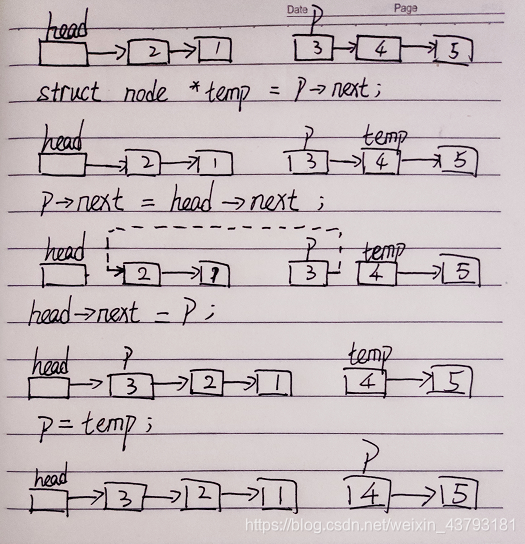 Date Page
head P
2 1 3 4 5
struct node *temp = P→next;
head P temp
2 1 3 4 5
P→next = head→next ;
head P temp
2 1 3 4 5
head→next = P;
head P temp
3 2 1 4 5
P = temp;
head P
3 2 1 4 5
https://blog.csdn.net/weixin_43793181